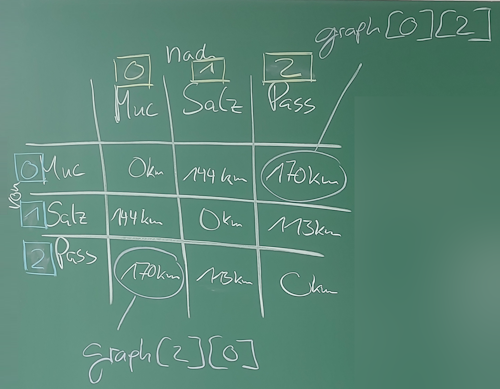 graph[0][2]
nach
0 1 2
Muc Salz Pass
von
0 Muc 0km 144km 170km
1 Salz 144km 0km 113km
2 Pass 170km 113km 0km
graph[2][0]